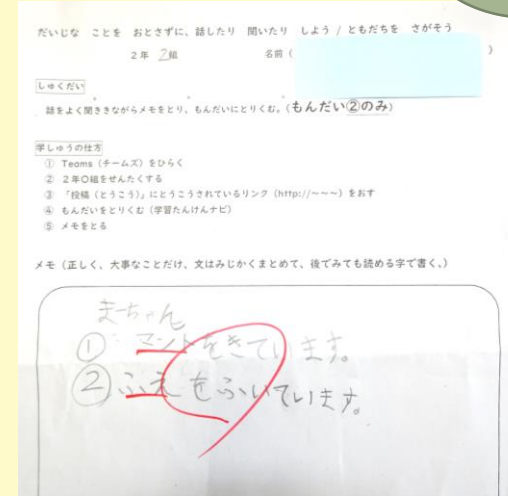 だいじな ことを おとさずに、話したり 聞いたり しよう / ともだちを さがそう
2年 2組 名前( )
しゅくだい
話をよく聞ききながらメモをとり、もんだいにとりくむ。(もんだい②のみ)
学しゅうの仕方
① Teams(チームズ)をひらく
② 2年〇組をせんたくする
③ 「投稿(とうこう)」にとうこうされているリンク(http://~~~)をおす
④ もんだいをとりくむ(学習たんけんナビ)
⑤ メモをとる
メモ(正しく、大事なことだけ、文はみじかくまとめて、後でみても読める字で書く。)
まーちゃん
① マントをきています。
② ふえをふいています。